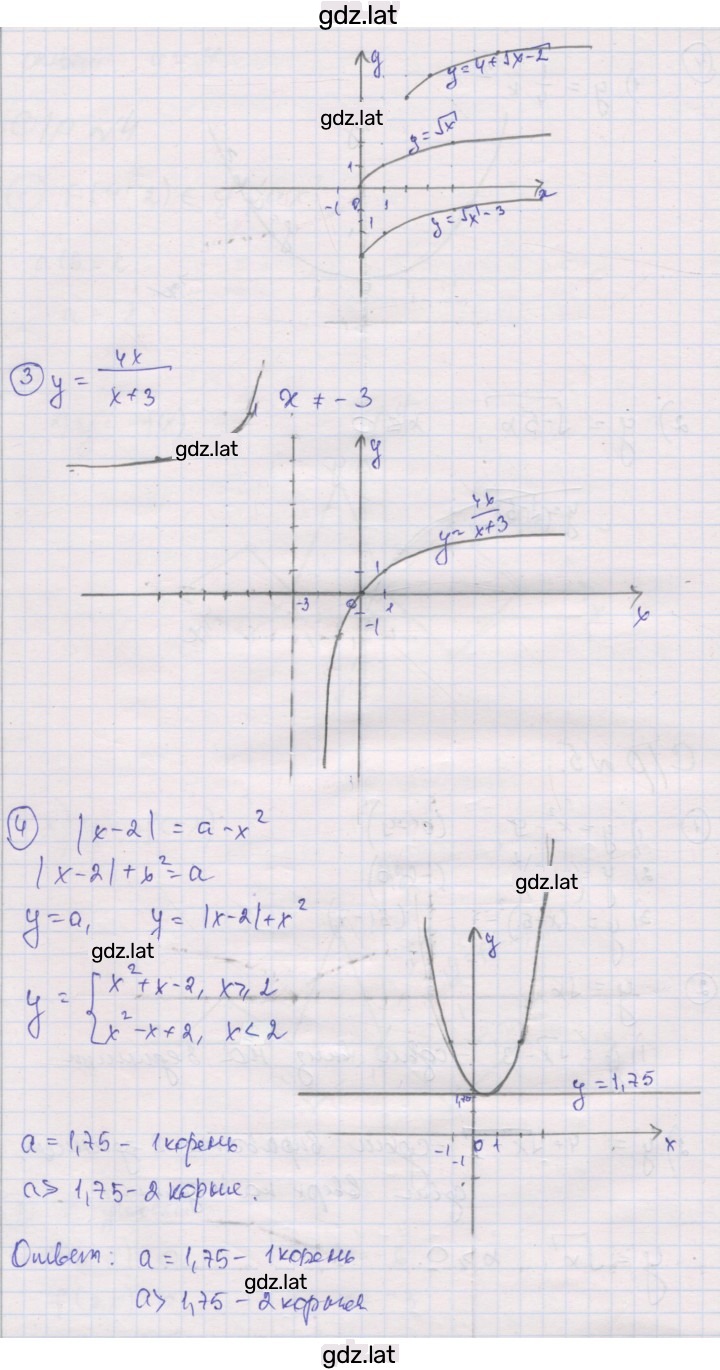 gdz.lat
y
y = 4 + √x-2
gdz.lat
y = √x
1
-1 0 1 x
-1
y = √x - 3
③ y = 4x/(x+3)
x ≠ -3
gdz.lat
y
y = 4x/(x+3)
1
-3 0 1
-1 x
④ |x-2| = a - x²
|x-2| + x² = a
gdz.lat
y = a, y = |x-2| + x²
gdz.lat
y
y = { x² + x - 2, x ⩾ 2
x² - x + 2, x < 2
y = 1,75
1,75
a = 1,75 - 1 корень
-1 0 1 x
-1
a > 1,75 - 2 корня.
Ответ: a = 1,75 - 1 корень
gdz.lat
a > 1,75 - 2 корня
gdz.lat